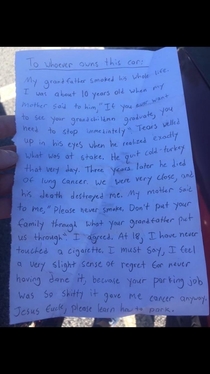 To whoever owns this car:
My grandfather smoked his whole life.
I was about 10 years old when my
mother said to him, "If you ever want
to see your grandchildren graduate, you
need to stop immediately". Tears welled
up in his eyes when he realized exactly
what was at stake. He quit cold-turkey
that very day. Three years later he died
of lung cancer. We were very close, and
his death destroyed me. My mother said
to me, "Please never smoke. Don't put your
family through what your grandfather put
us through." I agreed. At 18, I have never
touched a cigarette. I must say, I feel
a very slight sense of regret for never
having done it, because your parking job
was so shitty it gave me cancer anyway.
Jesus fuck, please learn how to park.